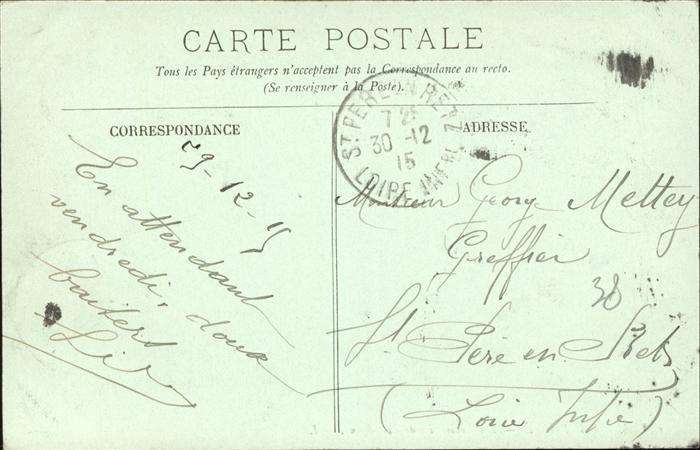 CARTE POSTALE
Tous les Pays étrangers n'acceptent pas la Correspondance au recto.
(Se renseigner à la Poste).
CORRESPONDANCE
29-12-15
En attendant
vendredi, doux
baisers
ADRESSE
ST PERE EN RETZ
7 25
30 -12
15
LOIRE INFRE
Monsieur Georg Mettey
Greffier
38
St Père en Retz
(Loire Infre)